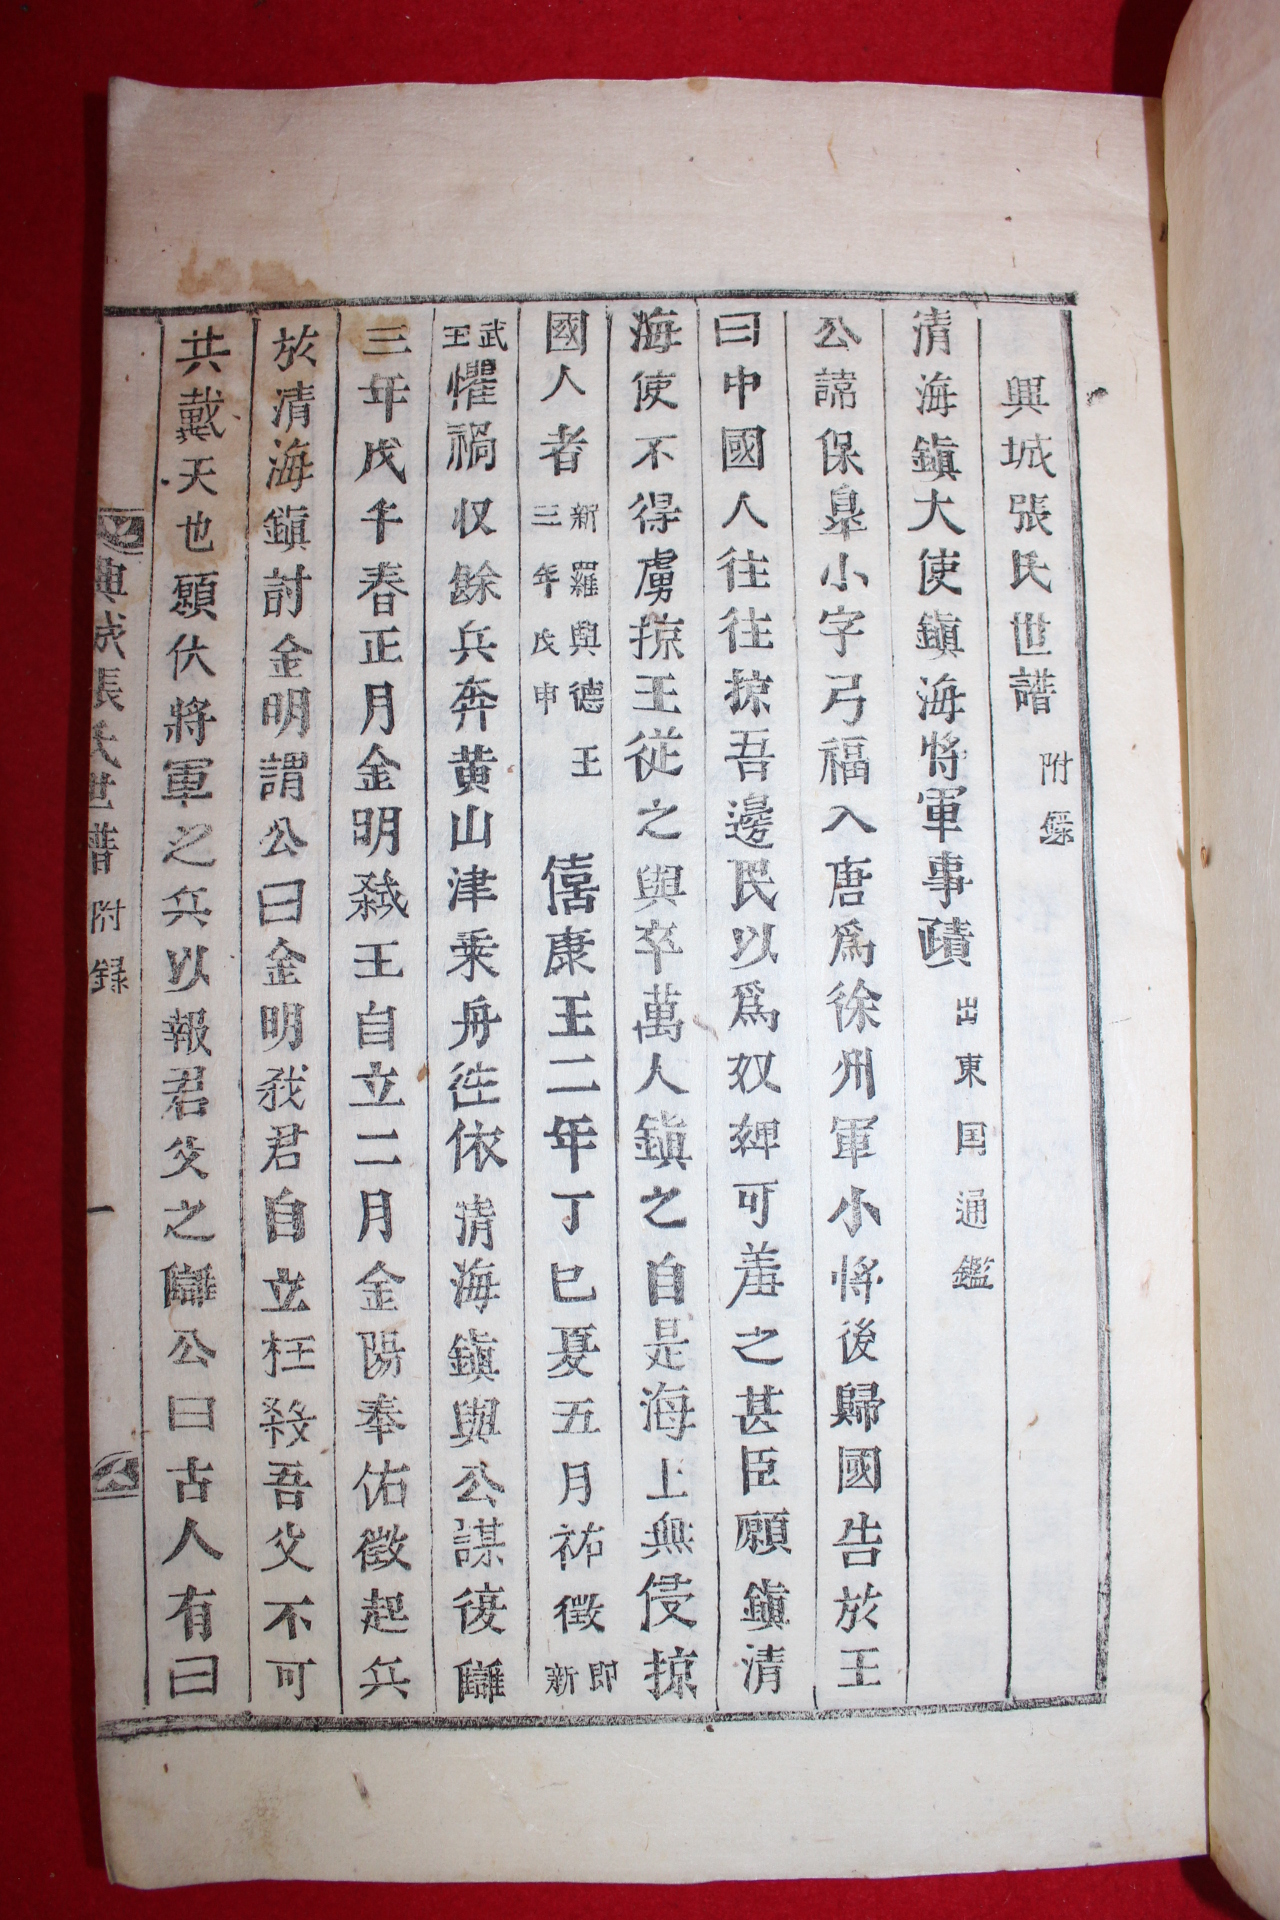 興城張氏世譜 附錄
清海鎭大使鎭海將軍事蹟 出東国通鑑
公諱保臯小字弓福入唐爲徐州軍小將後歸國告於王
曰中國人往往掠吾邊民以爲奴婢可羞之甚臣願鎭清
海使不得虜掠王從之與卒萬人鎭之自是海上無侵掠
國人者 新羅興德王三年戊申 僖康王二年丁巳憂五月祐徵 即新
武王 懼禍収餘兵奔黃山津乘舟徃依清海鎭與公謀復讎
三年戊午春正月金明弑王自立二月金陽奉佑徵起兵
於清海鎭討金明謂公曰金明我君自立枉殺吾父不可
共戴天也願仗將軍之兵以報君父之讎公曰古人有曰
興城張氏世譜 附録 一